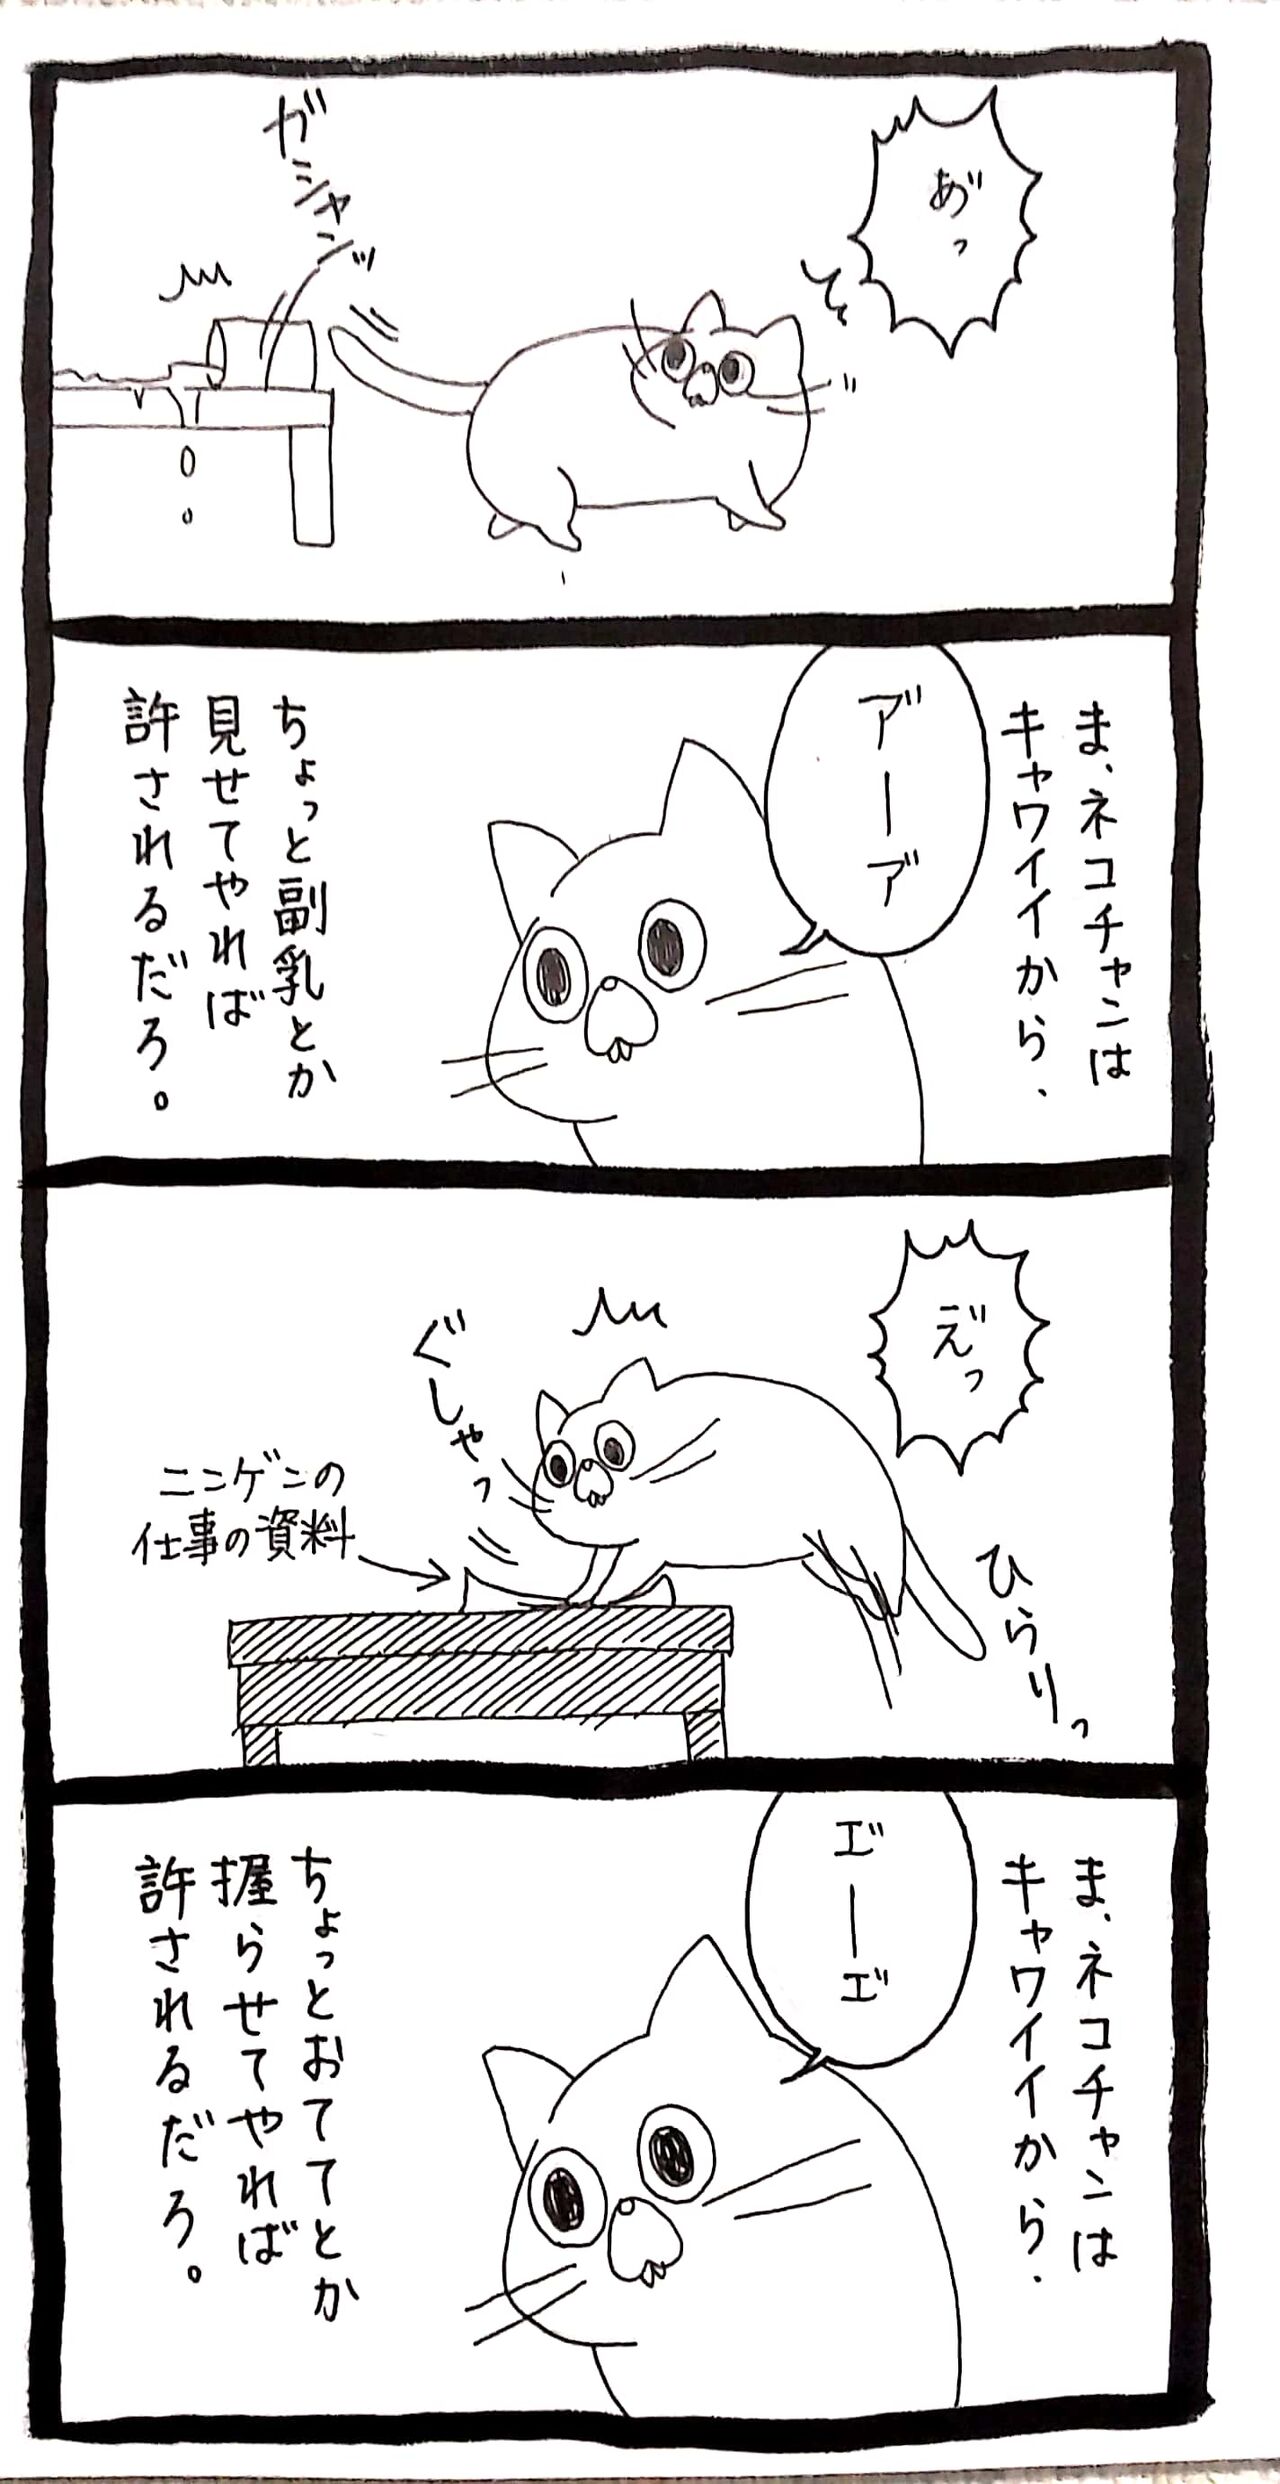 あ゛っ
ガシャンッ
ま、ネコチャンは
キャワイイから、
ア゛ーア゛
ちょっと副乳とか
見せてやれば
許されるだろ。
え゛っ
ひらりっ
ぐしゃっ
ニンゲンの
仕事の資料
ま、ネコチャンは
キャワイイから、
エ゛ーエ゛
ちょっとおててとか
握らせてやれば
許されるだろ。